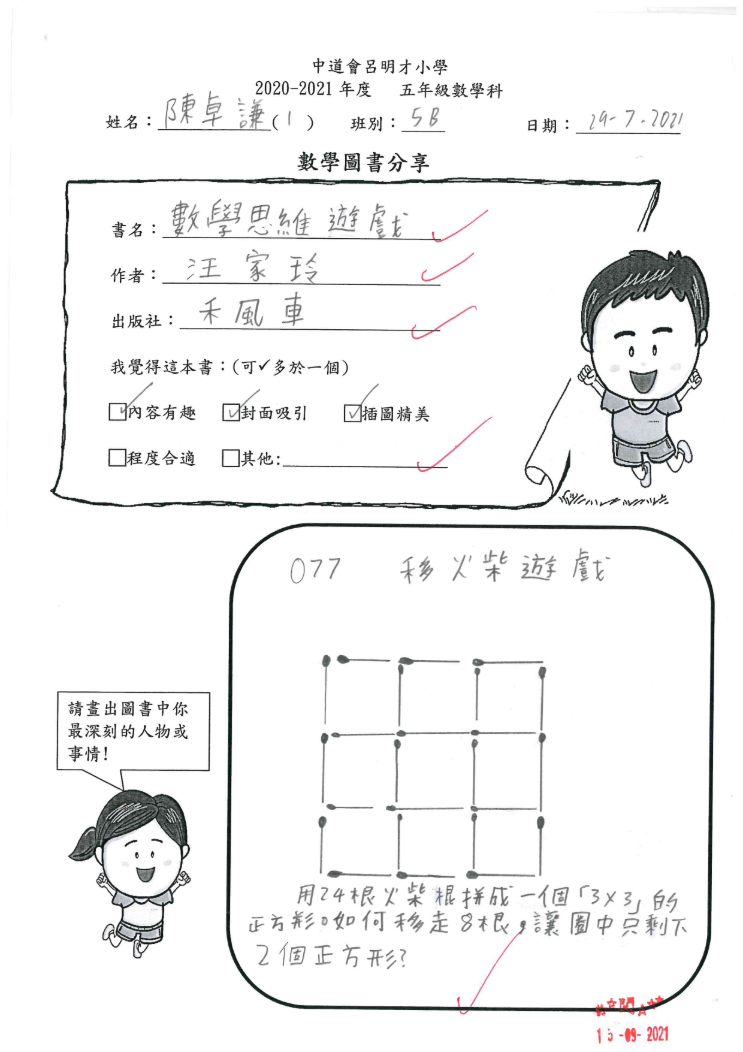 中道會呂明才小學
2020-2021 年度 五年級數學科
姓名：陳卓謙(1) 班別：5B 日期：29-7-2021
數學圖書分享
書名：數學思維遊戲
作者：汪家玲
出版社：禾風車
我覺得這本書：(可✓多於一個)
☑內容有趣 ☑封面吸引 ☑插圖精美
□程度合適 □其他:
077 移火柴遊戲
請畫出圖書中你
最深刻的人物或
事情！
用24根火柴棍拼成一個「3×3」的
正方形。如何移走8根，讓圖中只剩下
2個正方形?
15-09-2021